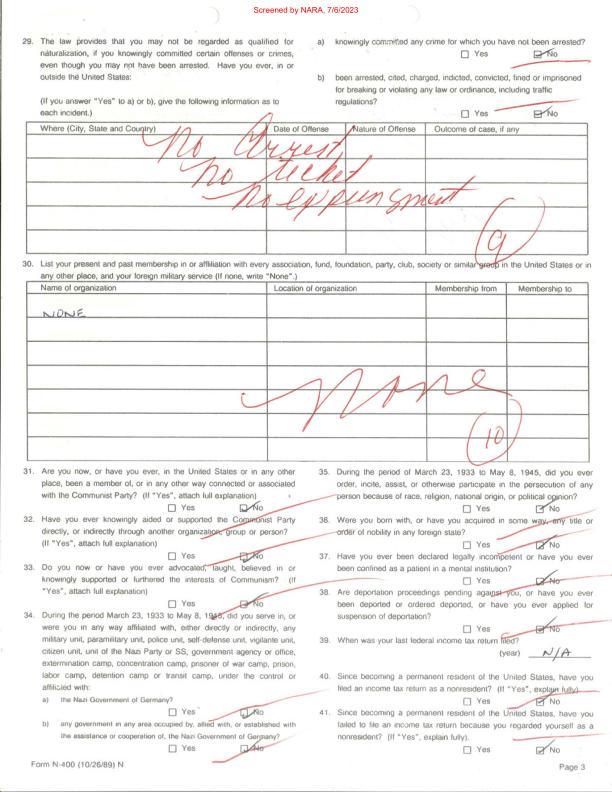 Screened by NARA, 7/6/2023
29. The law provides that you may not be regarded as qualified for
naturalization, if you knowingly committed certain offenses or crimes,
even though you may not have been arrested. Have you ever, in or
outside the United States:
(If you answer "Yes" to a) or b), give the following information as to
each incident.)
a) knowingly committed any crime for which you have not been arrested?
☐ Yes ☑ No
b) been arrested, cited, charged, indicted, convicted, fined or imprisoned
for breaking or violating any law or ordinance, including traffic
regulations?
☐ Yes ☑ No
Where (City, State and Country) Date of Offense Nature of Offense Outcome of case, if any
No Arrest
no ticket
no expungment
9
30. List your present and past membership in or affiliation with every association, fund, foundation, party, club, society or similar group in the United States or in
any other place, and your foreign military service (If none, write "None".)
Name of organization Location of organization Membership from Membership to
NONE
None
10
31. Are you now, or have you ever, in the United States or in any other
place, been a member of, or in any other way connected or associated
with the Communist Party? (If "Yes", attach full explanation)
☐ Yes ☑ No
32. Have you ever knowingly aided or supported the Communist Party
directly, or indirectly through another organization, group or person?
(If "Yes", attach full explanation)
☐ Yes ☑ No
33. Do you now or have you ever advocated, taught, believed in or
knowingly supported or furthered the interests of Communism? (If
"Yes", attach full explanation)
☐ Yes ☑ No
34. During the period March 23, 1933 to May 8, 1945, did you serve in, or
were you in any way affiliated with, either directly or indirectly, any
military unit, paramilitary unit, police unit, self-defense unit, vigilante unit,
citizen unit, unit of the Nazi Party or SS, government agency or office,
extermination camp, concentration camp, prisoner of war camp, prison,
labor camp, detention camp or transit camp, under the control or
affiliated with:
a) the Nazi Government of Germany?
☐ Yes ☑ No
b) any government in any area occupied by, allied with, or established with
the assistance or cooperation of, the Nazi Government of Germany?
☐ Yes ☑ No
35. During the period of March 23, 1933 to May 8, 1945, did you ever
order, incite, assist, or otherwise participate in the persecution of any
person because of race, religion, national origin, or political opinion?
☐ Yes ☑ No
36. Were you born with, or have you acquired in some way, any title or
order of nobility in any foreign state?
☐ Yes ☑ No
37. Have you ever been declared legally incompetent or have you ever
been confined as a patient in a mental institution?
☐ Yes ☑ No
38. Are deportation proceedings pending against you, or have you ever
been deported or ordered deported, or have you ever applied for
suspension of deportation?
☐ Yes ☑ No
39. When was your last federal income tax return filed?
(year) N/A
40. Since becoming a permanent resident of the United States, have you
filed an income tax return as a nonresident? (If "Yes", explain fully)
☐ Yes ☑ No
41. Since becoming a permanent resident of the United States, have you
failed to file an income tax return because you regarded yourself as a
nonresident? (If "Yes", explain fully).
☐ Yes ☑ No
Form N-400 (10/26/89) N
Page 3